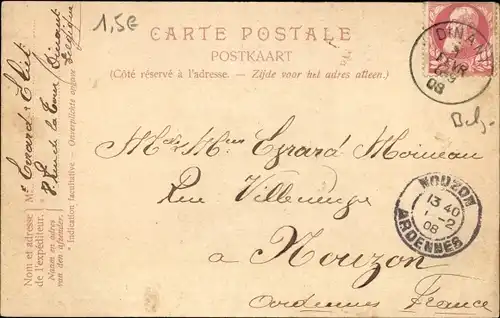 1,5€
CARTE POSTALE
POSTKAART
(Côté réservé à l'adresse. – Zijde voor het adres alleen.)
DINANT
FÉVR
08
Belg.
Mr & Mme Evrard Moineau
Rue Villeneuve
à Nouzon
Ardennes France
NOUZON
13 40
1 - 2
08
ARDENNES
Nom et adresse
de l'expéditeur:
Naam en adres
van den afzender.
* Indication facultative – Onverplichte opgave
Dinant
Belgique